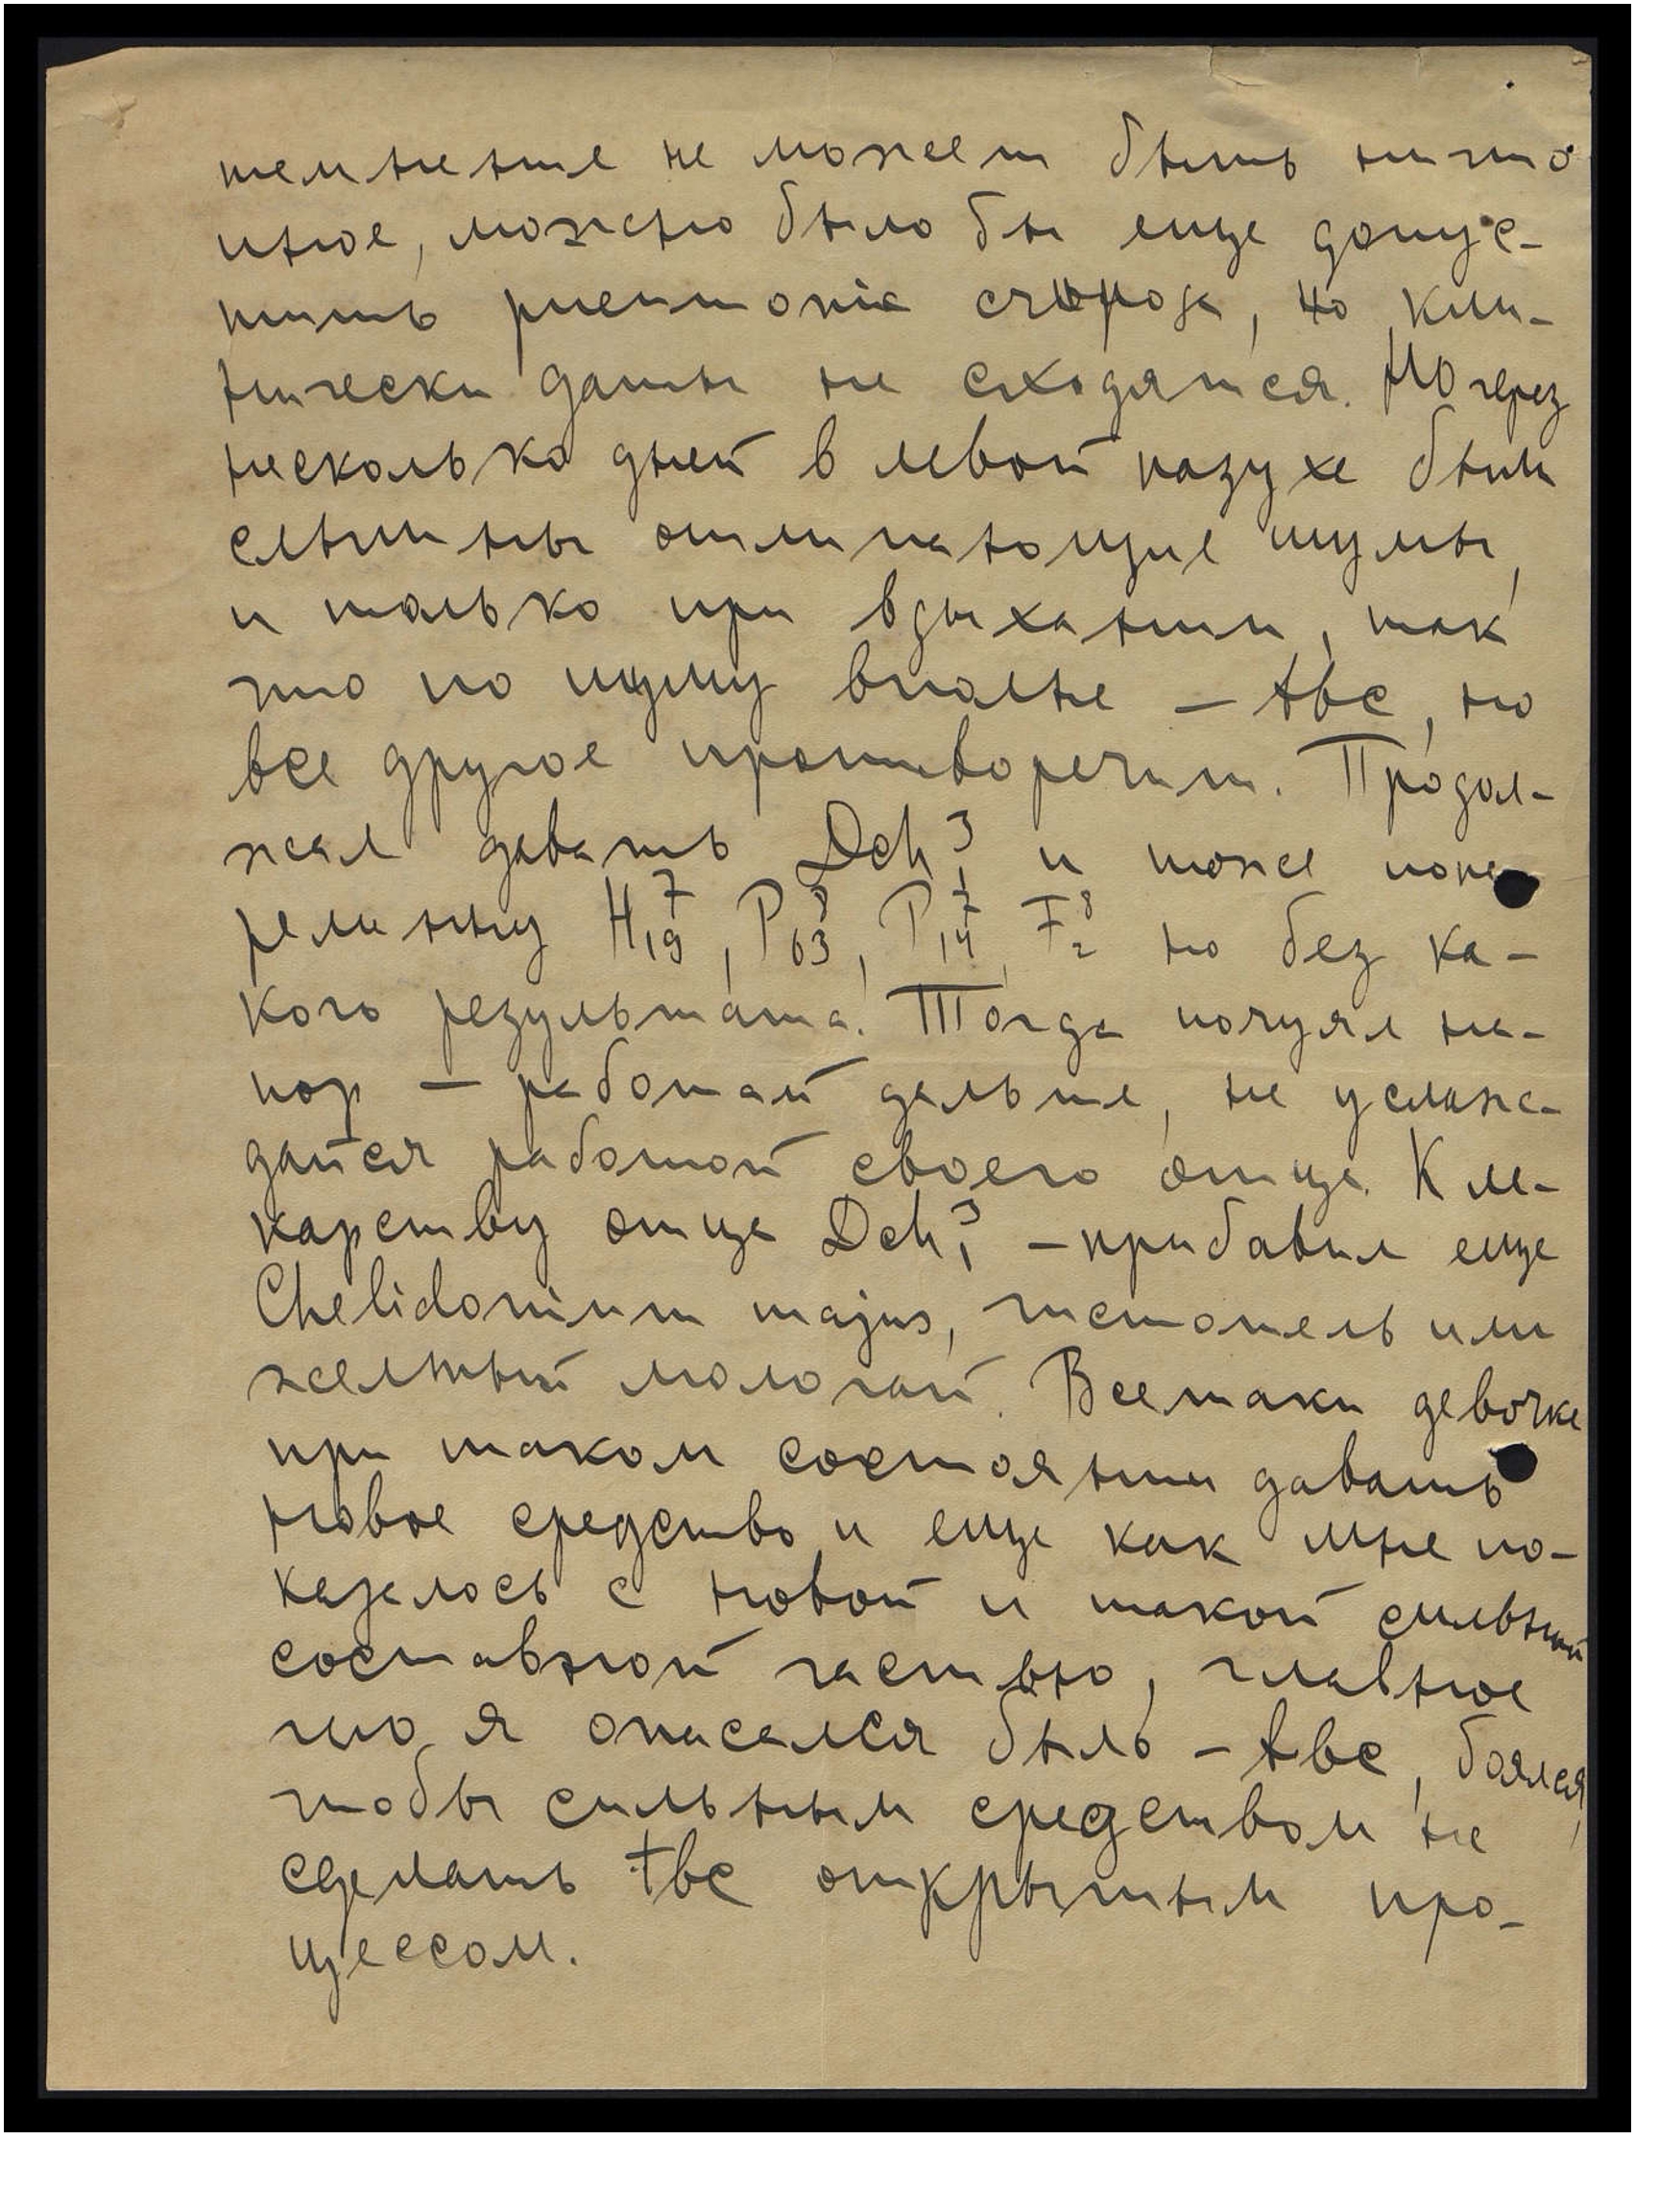 темнение не может быть ничто
иное, можно было бы еще допус-
тить pneumonia crouposa, но кли-
нически даты не сходятся. Но через
несколько дней в левой пазухе были
слышны отлипающие шумы,
и только при вдыхании, так
что по шуму вполне — tbc, но
все другое противоречит. Продол-
жал давать Dch³₁ и тоже попе
ременну H⁷₁₉, P⁸₆₃, P⁷₁₄, F⁸₂ но без ка-
кого результата. Тогда почуял на-
пор — работай дальше, не услаж-
дайся работой своего отца. К ле-
карству отца Dch³₁ - прибавил еще
Chelidonium majus, чистотель или
желтый молочай. Всетаки девочке
при таком состоянии давать
новое средство и еще как мне по-
казалось с новой и такой сильной
составной частью, главное
что я опасался быль - tbc, боялся,
чтобы сильным средством не
сделать tbc открытым про-
цессом.